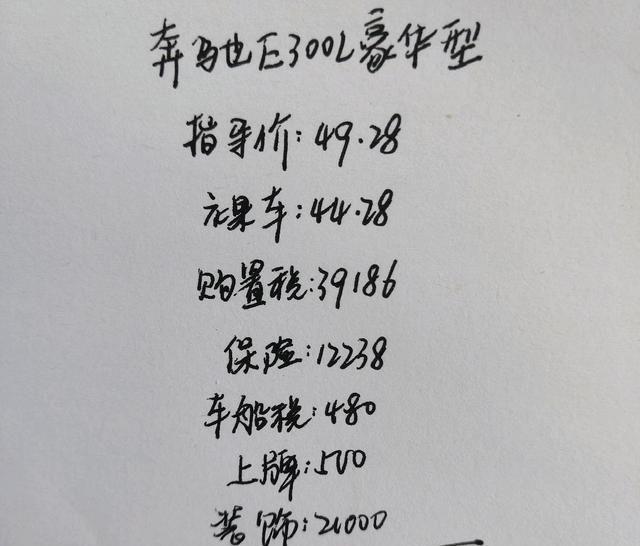 奔驰E300L豪华型
指导价:49.28
裸车:44.28
购置税:39186
保险:12238
车船税:480
上牌:500
装饰:21000